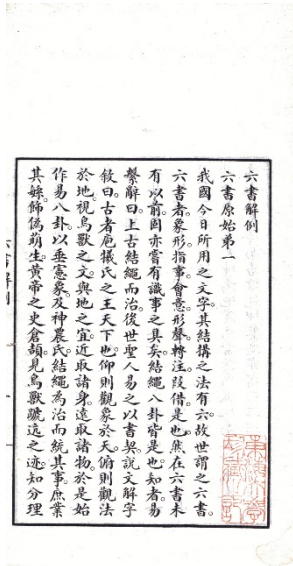 六書解例
六書原始第一
我國今日所用之文字。其結搆之法有六。故世謂之六書。
六書者。象形。指事。會意。形聲。轉注。叚借是也。然在六書未
有以前。固亦嘗有識事之具矣。結繩八卦皆是也。知者。易
繫辭曰。上古結繩而治。後世聖人易之以書契。說文解字
敘曰。古者庖犧氏之王天下也。仰則觀象於天。俯則觀法
於地。視鳥獸之文。與地之宜。近取諸身。遠取諸物。於是始
作易八卦。以垂憲象。及神農氏結繩為治而統其事。庶業
其緐。飾偽萌生。黃帝之史倉頡。見鳥獸蹏迒之迹。知分理
六書解例